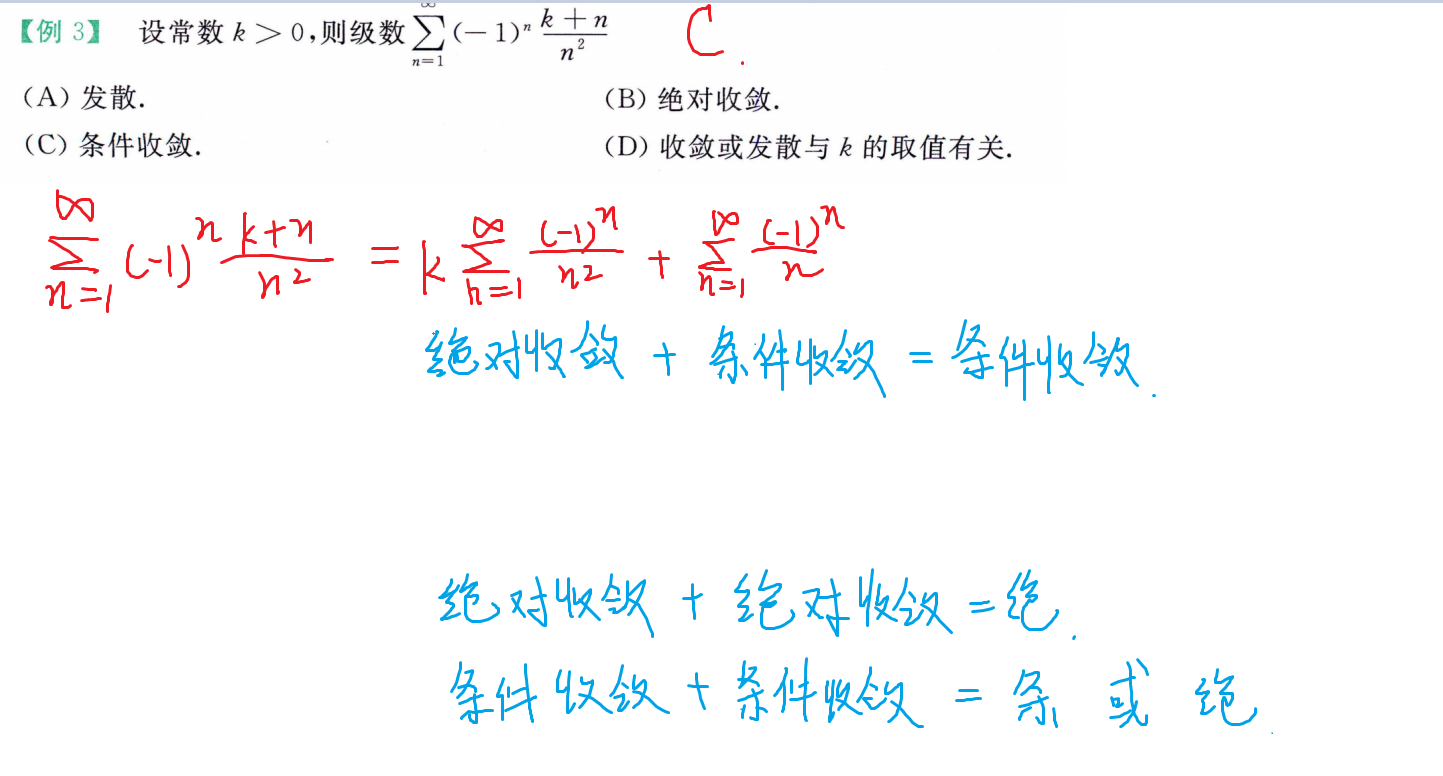 【例 3】 设常数 k > 0,则级数 ∑_{n=1}^{∞} (-1)^n \frac{k+n}{n^2} C.
(A) 发散. (B) 绝对收敛.
(C) 条件收敛. (D) 收敛或发散与 k 的取值有关.
∑_{n=1}^{∞} (-1)^n \frac{k+n}{n^2} = k ∑_{n=1}^{∞} \frac{(-1)^n}{n^2} + ∑_{n=1}^{∞} \frac{(-1)^n}{n}
绝对收敛 + 条件收敛 = 条件收敛.
绝对收敛 + 绝对收敛 = 绝.
条件收敛 + 条件收敛 = 条 或 绝.